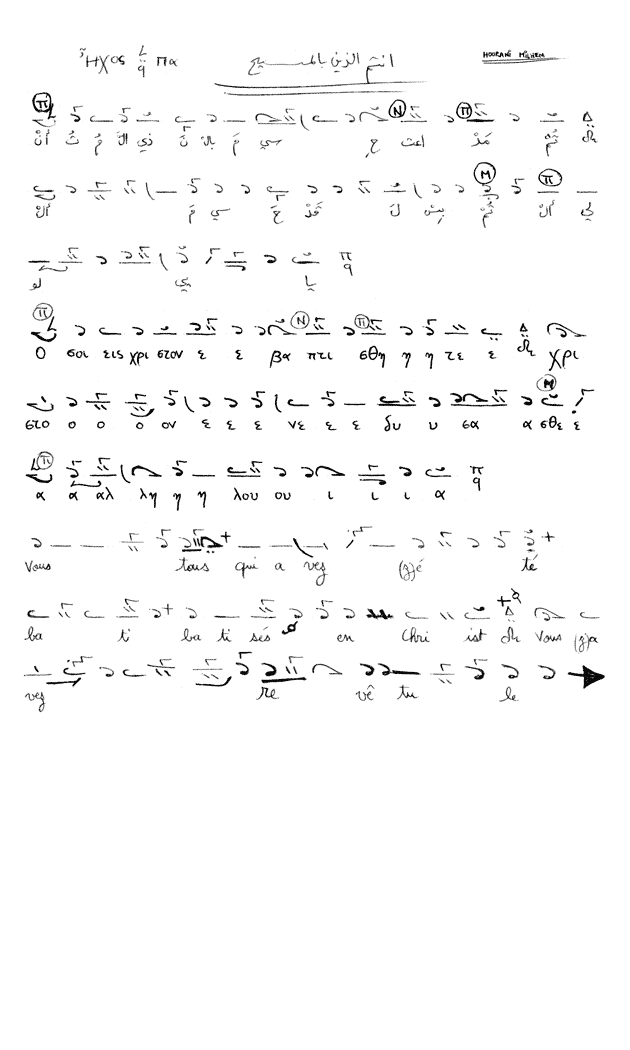 Ἦχος Πα انتم الذين بالمسيح HOORANI MILHEM
أنْ تُ مُ الْ ذي نَ بالْ مَ سي حِ اعت مَدْ تُمْ
ألْ مَ سي حَ قَدْ لَ بِسْ تُمْ ألْ لي
لو يي يا
Ο σοι εις χρι στον ε ε βα πτι σθη η η τε ε χρι
στο ο ο ο ον ε ε ε νε ε ε δυ υ σα α σθε ε
α α αλ λη η η λου ου ι ι ι α
Vous tous qui a vez (z)é té
ba ti ba ti sés en Chri ist Vous (z)a
vez re vê tu le